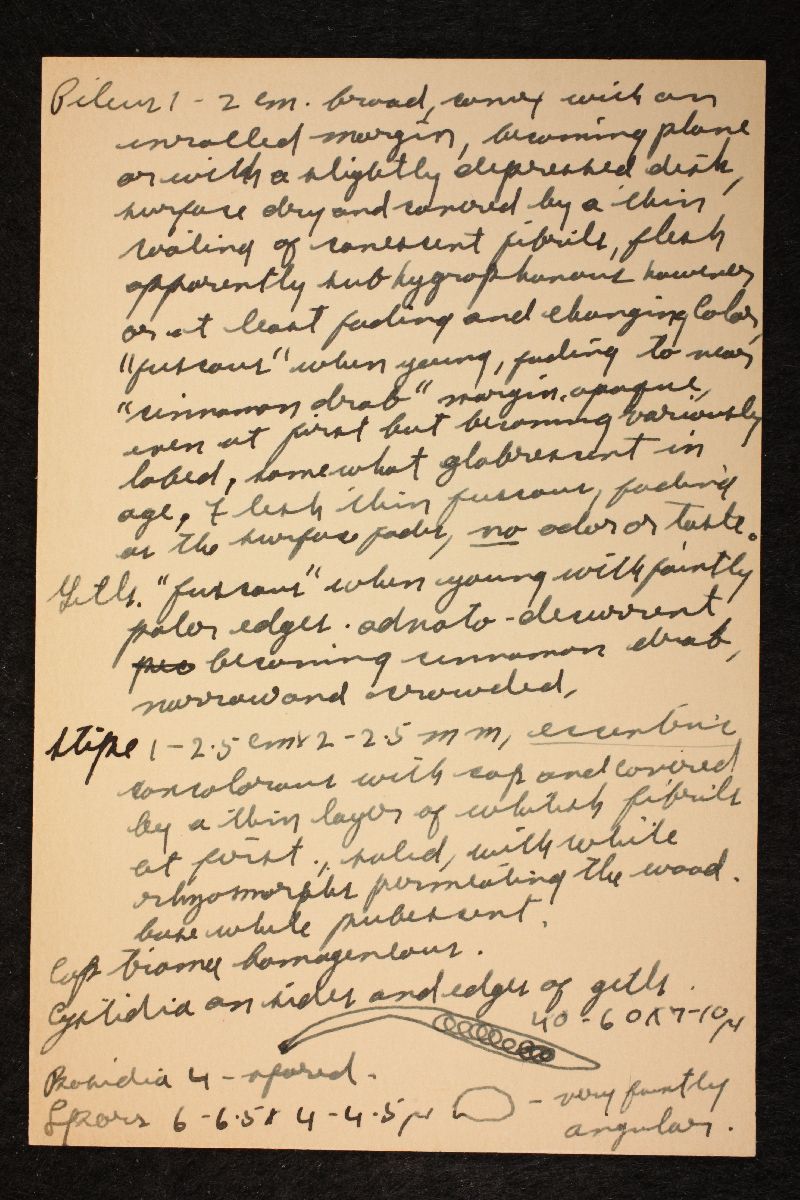 Pileus 1 - 2 cm. broad, convex with an
inrolled margin, becoming plane
or with a slightly depressed disk,
surface dry and covered by a thin
coating of canescent fibrils, flesh
apparently subhygrophanous however
or at least fading and changing color,
"fuscous" when young, fading to near
"cinnamon drab" margin opaque,
even at first but becoming variously
lobed, somewhat glabrescent in
age, Flesh thin fuscous, fading
as the surface fades, no odor or taste.
Gills. "fuscous" when young with faintly
paler edges. adnato-decurrent
becoming cinnamon drab,
narrow and crowded,
Stipe 1 - 2.5 cm x 2 - 2.5 mm, eccentric
concolorous with cap and covered
by a thin layer of whitish fibrils
at first., solid, with white
rhyzomorphs permeating the wood.
base white pubescent.
Cap trama homogeneous.
Cystidia on sides and edges of gills.
40 - 60 x 7-10 μ
Basidia 4 - spored.
Spores 6 - 6.5 x 4 - 4.5 μ - very faintly
angular.